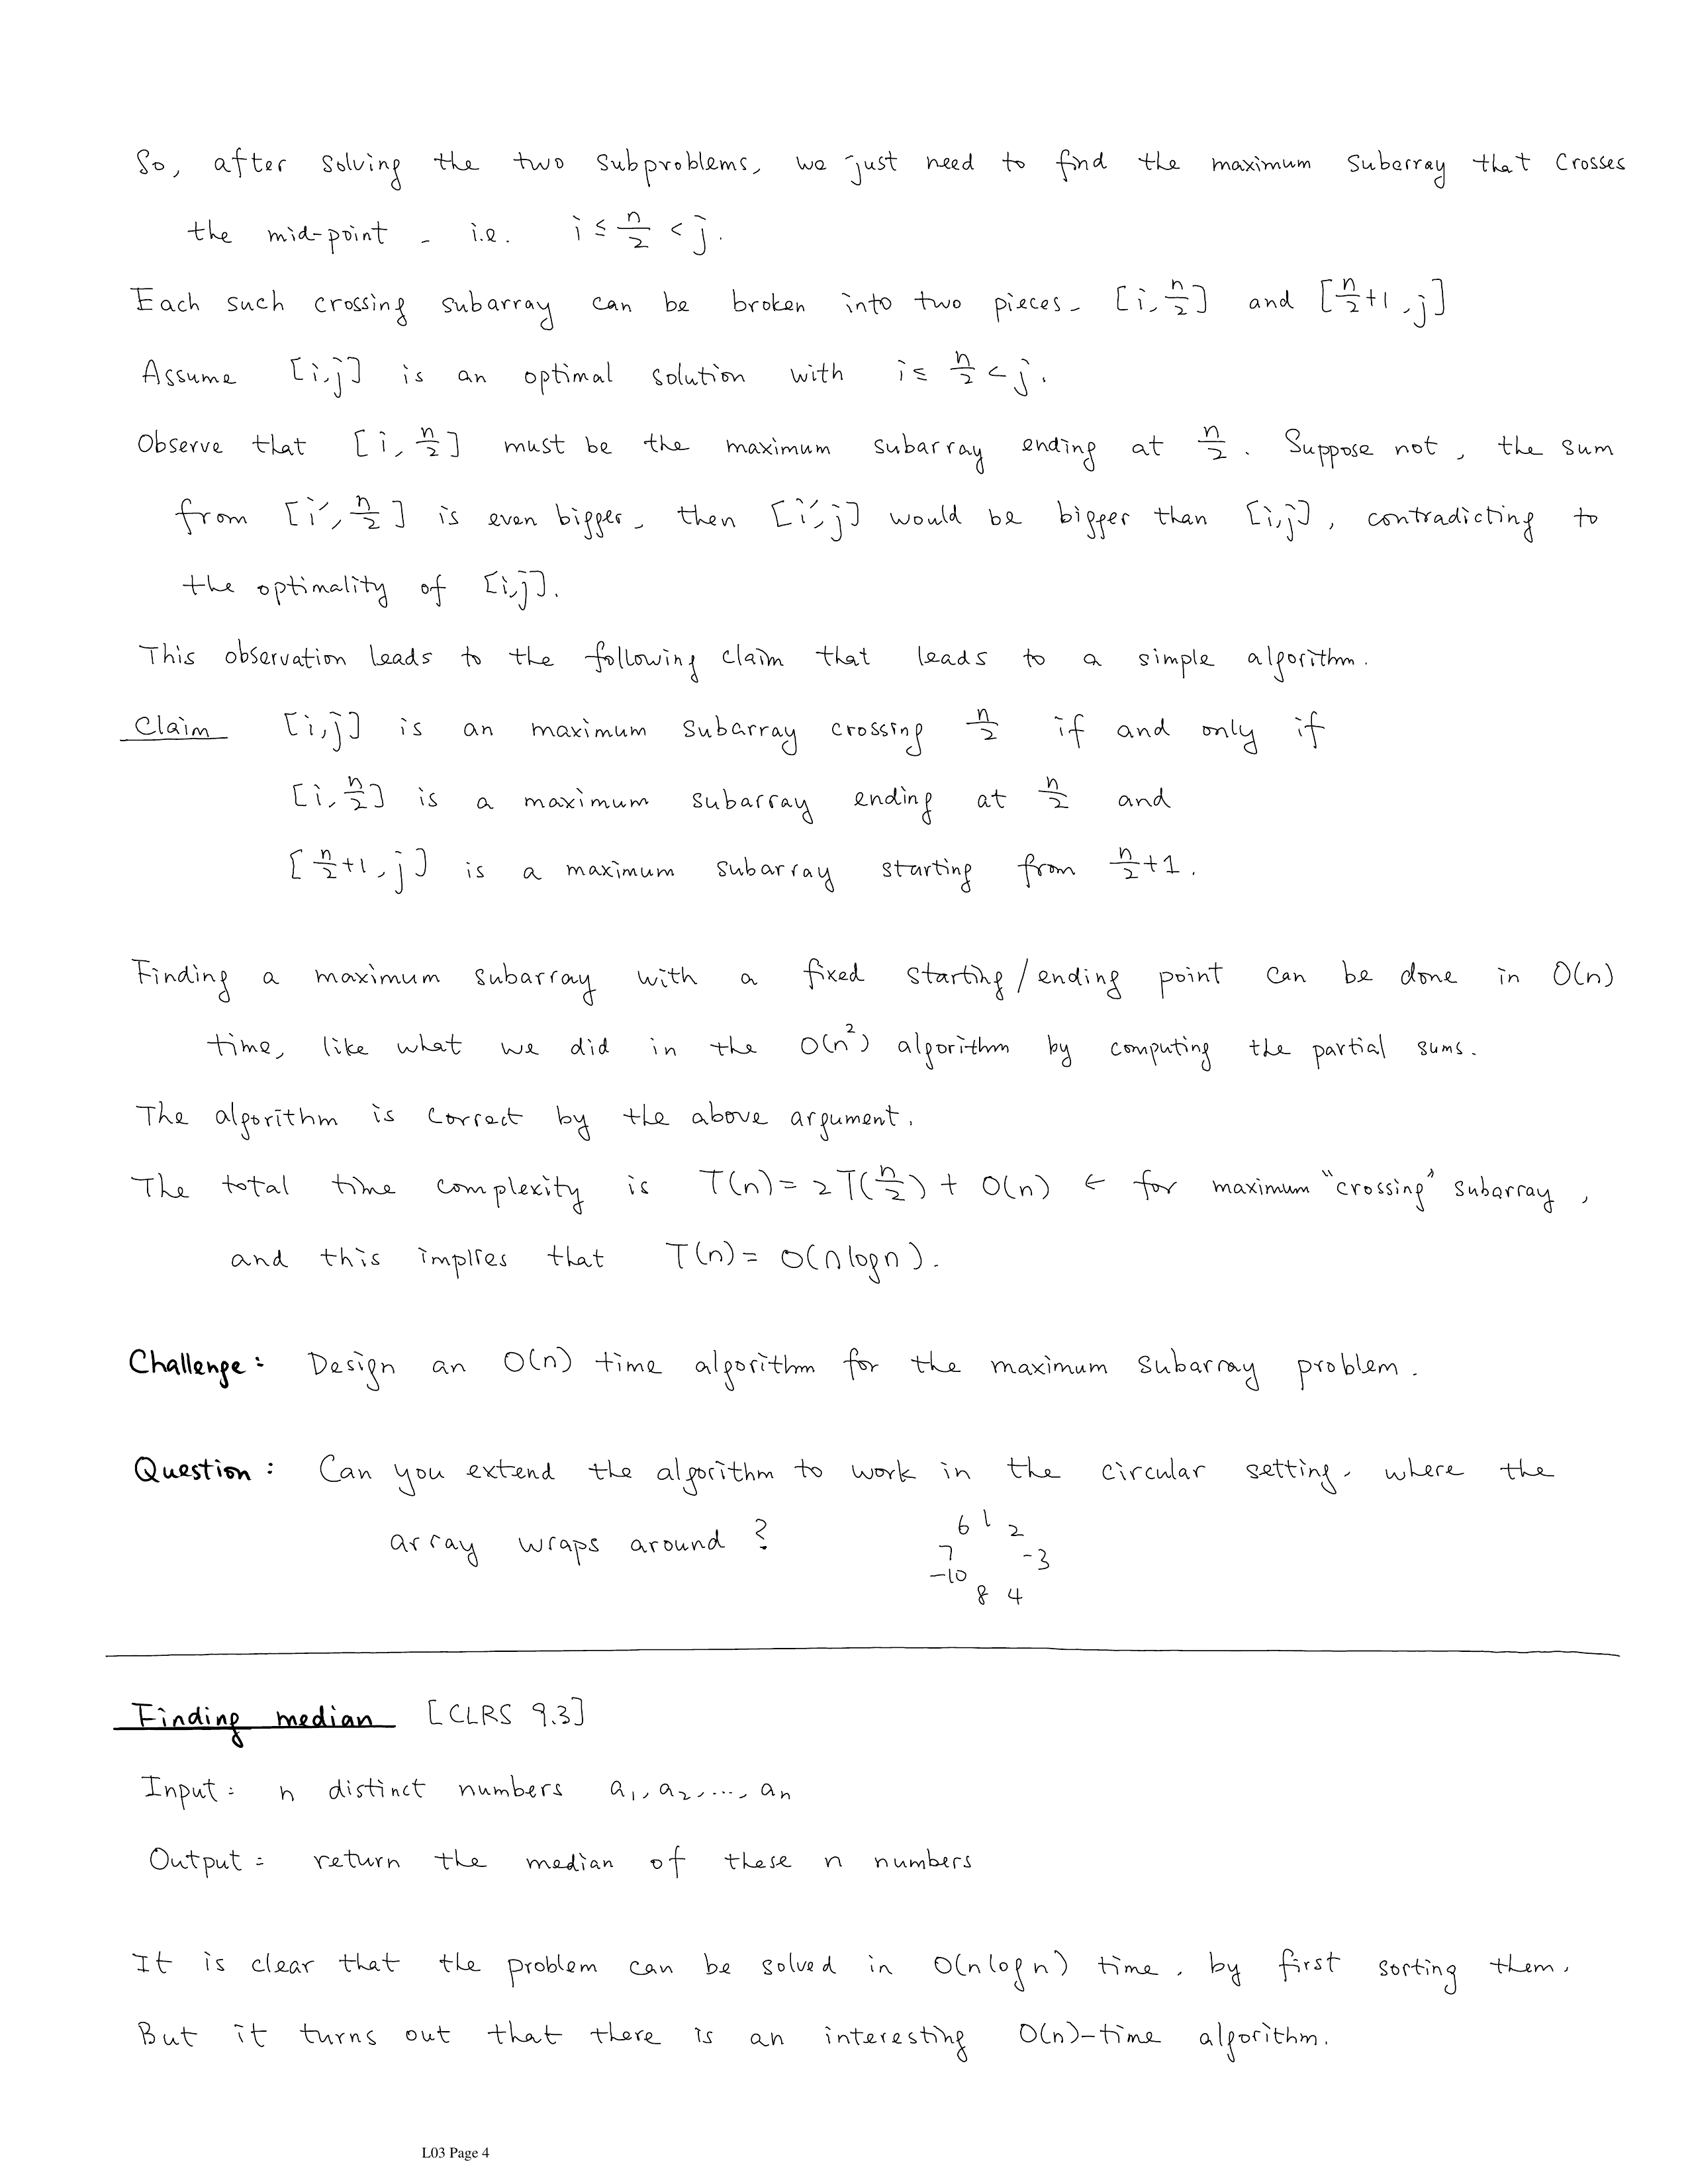 So, after solving the two subproblems, we just need to find the maximum subarray that crosses
the mid-point, i.e. i ≤ n/2 < j.
Each such crossing subarray can be broken into two pieces, [i, n/2] and [n/2+1, j]
Assume [i,j] is an optimal solution with i ≤ n/2 < j.
Observe that [i, n/2] must be the maximum subarray ending at n/2. Suppose not, the sum
from [i', n/2] is even bigger, then [i',j] would be bigger than [i,j], contradicting to
the optimality of [i,j].
This observation leads to the following claim that leads to a simple algorithm.
Claim [i,j] is an maximum subarray crossing n/2 if and only if
[i, n/2] is a maximum subarray ending at n/2 and
[n/2+1, j] is a maximum subarray starting from n/2+1.
Finding a maximum subarray with a fixed starting/ending point can be done in O(n)
time, like what we did in the O(n²) algorithm by computing the partial sums.
The algorithm is correct by the above argument.
The total time complexity is T(n) = 2T(n/2) + O(n) ← for maximum "crossing" subarray,
and this implies that T(n) = O(n log n).
Challenge: Design an O(n) time algorithm for the maximum subarray problem.
Question: Can you extend the algorithm to work in the circular setting, where the
array wraps around?
6 1 2
7 -3
-10
8 4
Finding median [CLRS 9.3]
Input: n distinct numbers a₁, a₂, ..., aₙ
Output: return the median of these n numbers
It is clear that the problem can be solved in O(n log n) time, by first sorting them.
But it turns out that there is an interesting O(n)-time algorithm.
L03 Page 4